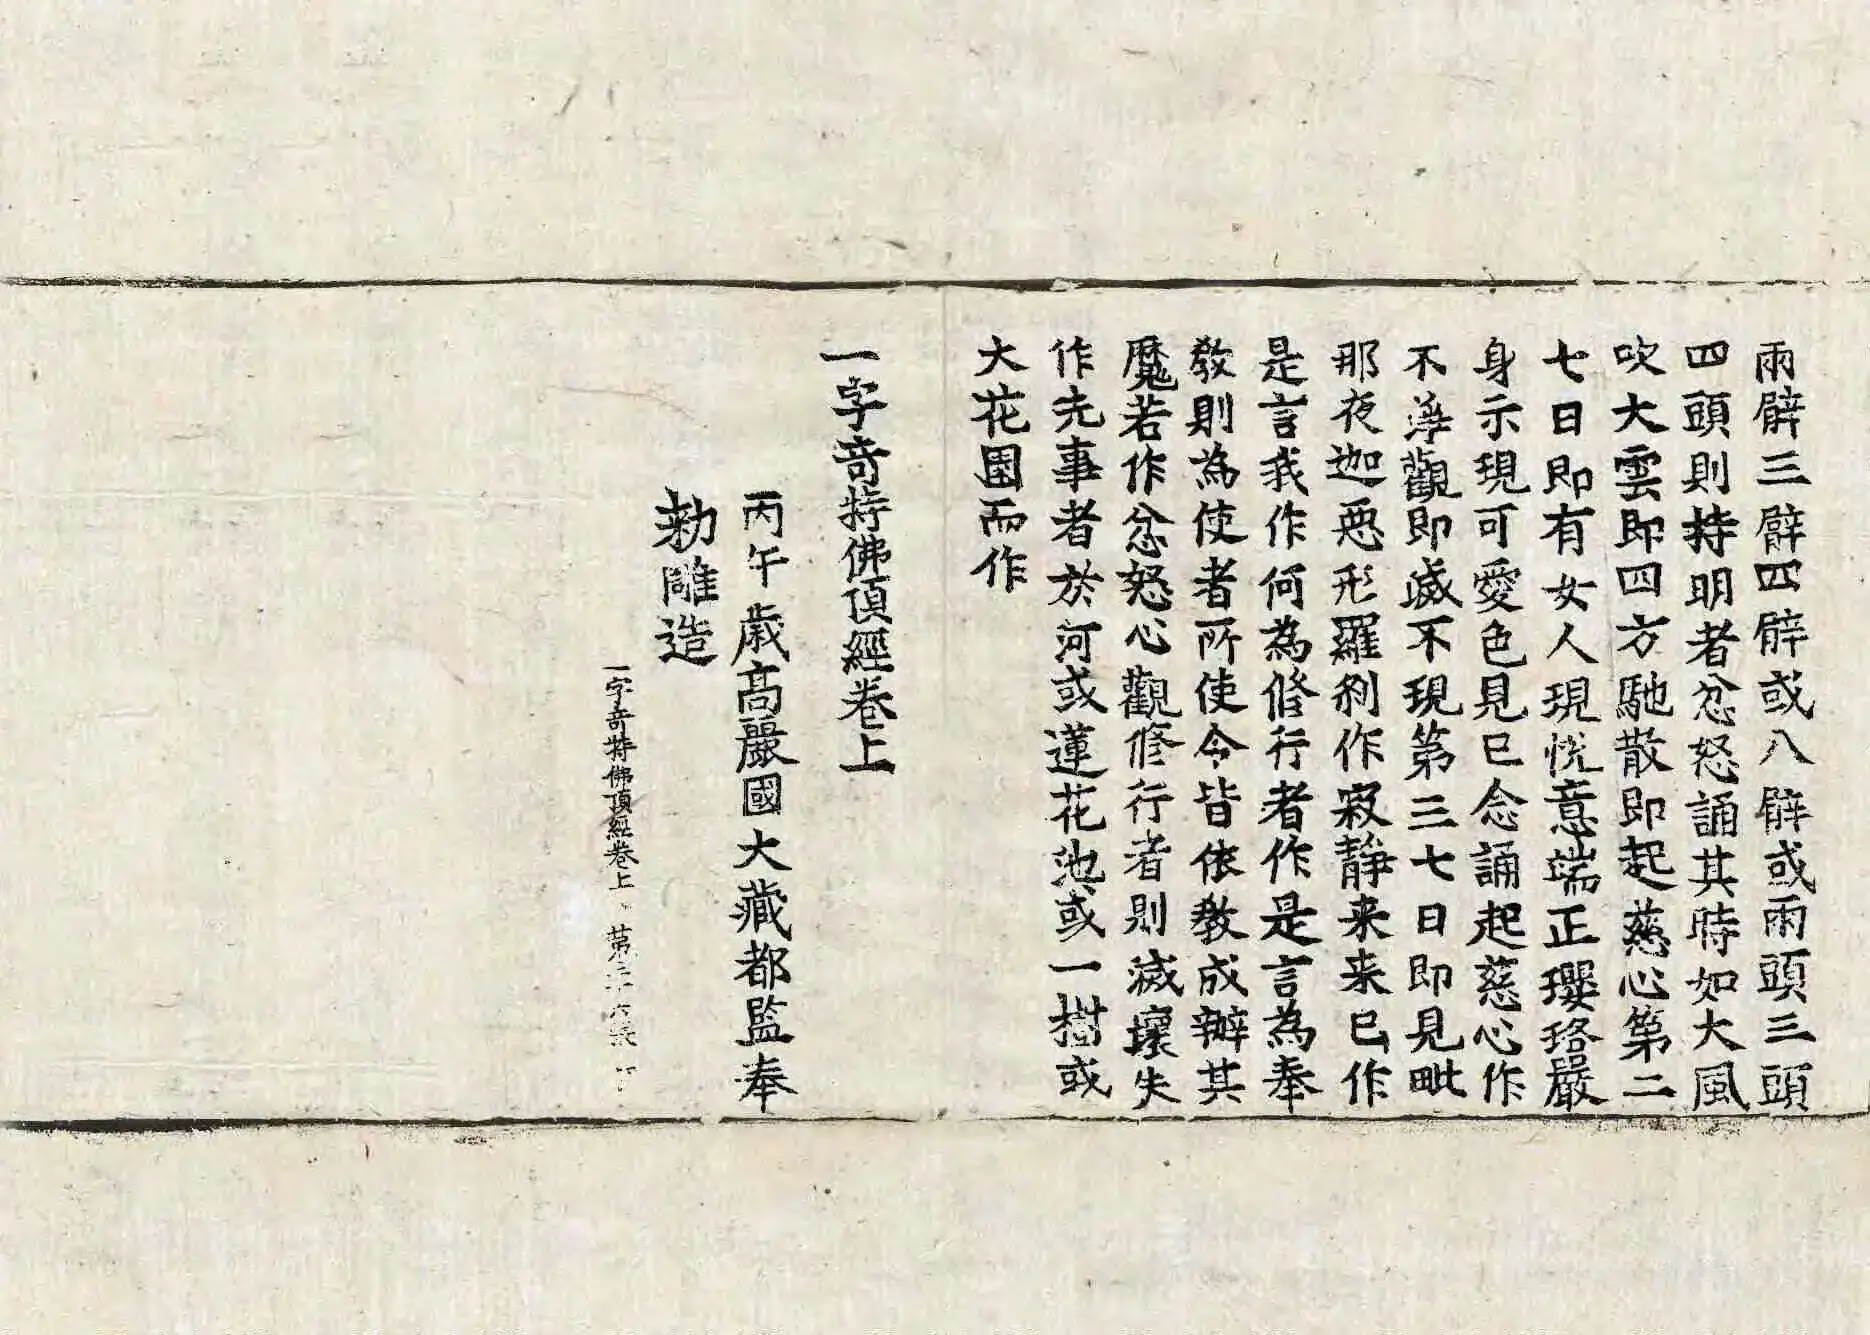 兩臂三臂四臂或八臂或兩頭三頭
四頭則持明者忿怒誦其時如大風
吹大雲即四方馳散即起慈心第二
七日即有女人現悅意端正瓔珞嚴
身示現可愛色見已念誦起慈心作
不淨觀即滅不現第三七日即見毗
那夜迦惡形羅剎作寂靜来来已作
是言我作何為修行者作是言為奉
教則為使者所使令皆依教成辦其
魔若作忿怒心觀修行者則滅壞失
作先事者於河或蓮花池或一樹或
大花園而作
一字奇特佛頂經卷上
丙午歲高麗國大藏都監奉
勅雕造
一字奇特佛頂經卷上 第二十六張